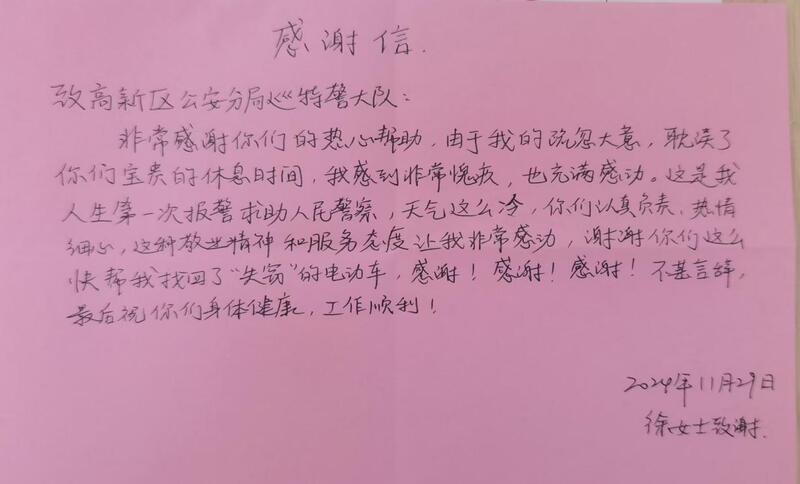 感谢信.
致高新区公安分局巡特警大队：
非常感谢你们的热心帮助，由于我的疏忽大意，耽误了
你们宝贵的休息时间，我感到非常愧疚，也充满感动。这是我
人生第一次报警求助人民警察，天气这么冷，你们认真负责、热情
细心，这种敬业精神和服务态度让我非常感动，谢谢你们这么
快帮我找回了“失窃”的电动车，感谢！感谢！感谢！不甚言辞，
最后祝你们身体健康，工作顺利！
2024年11月29日
徐女士致谢.